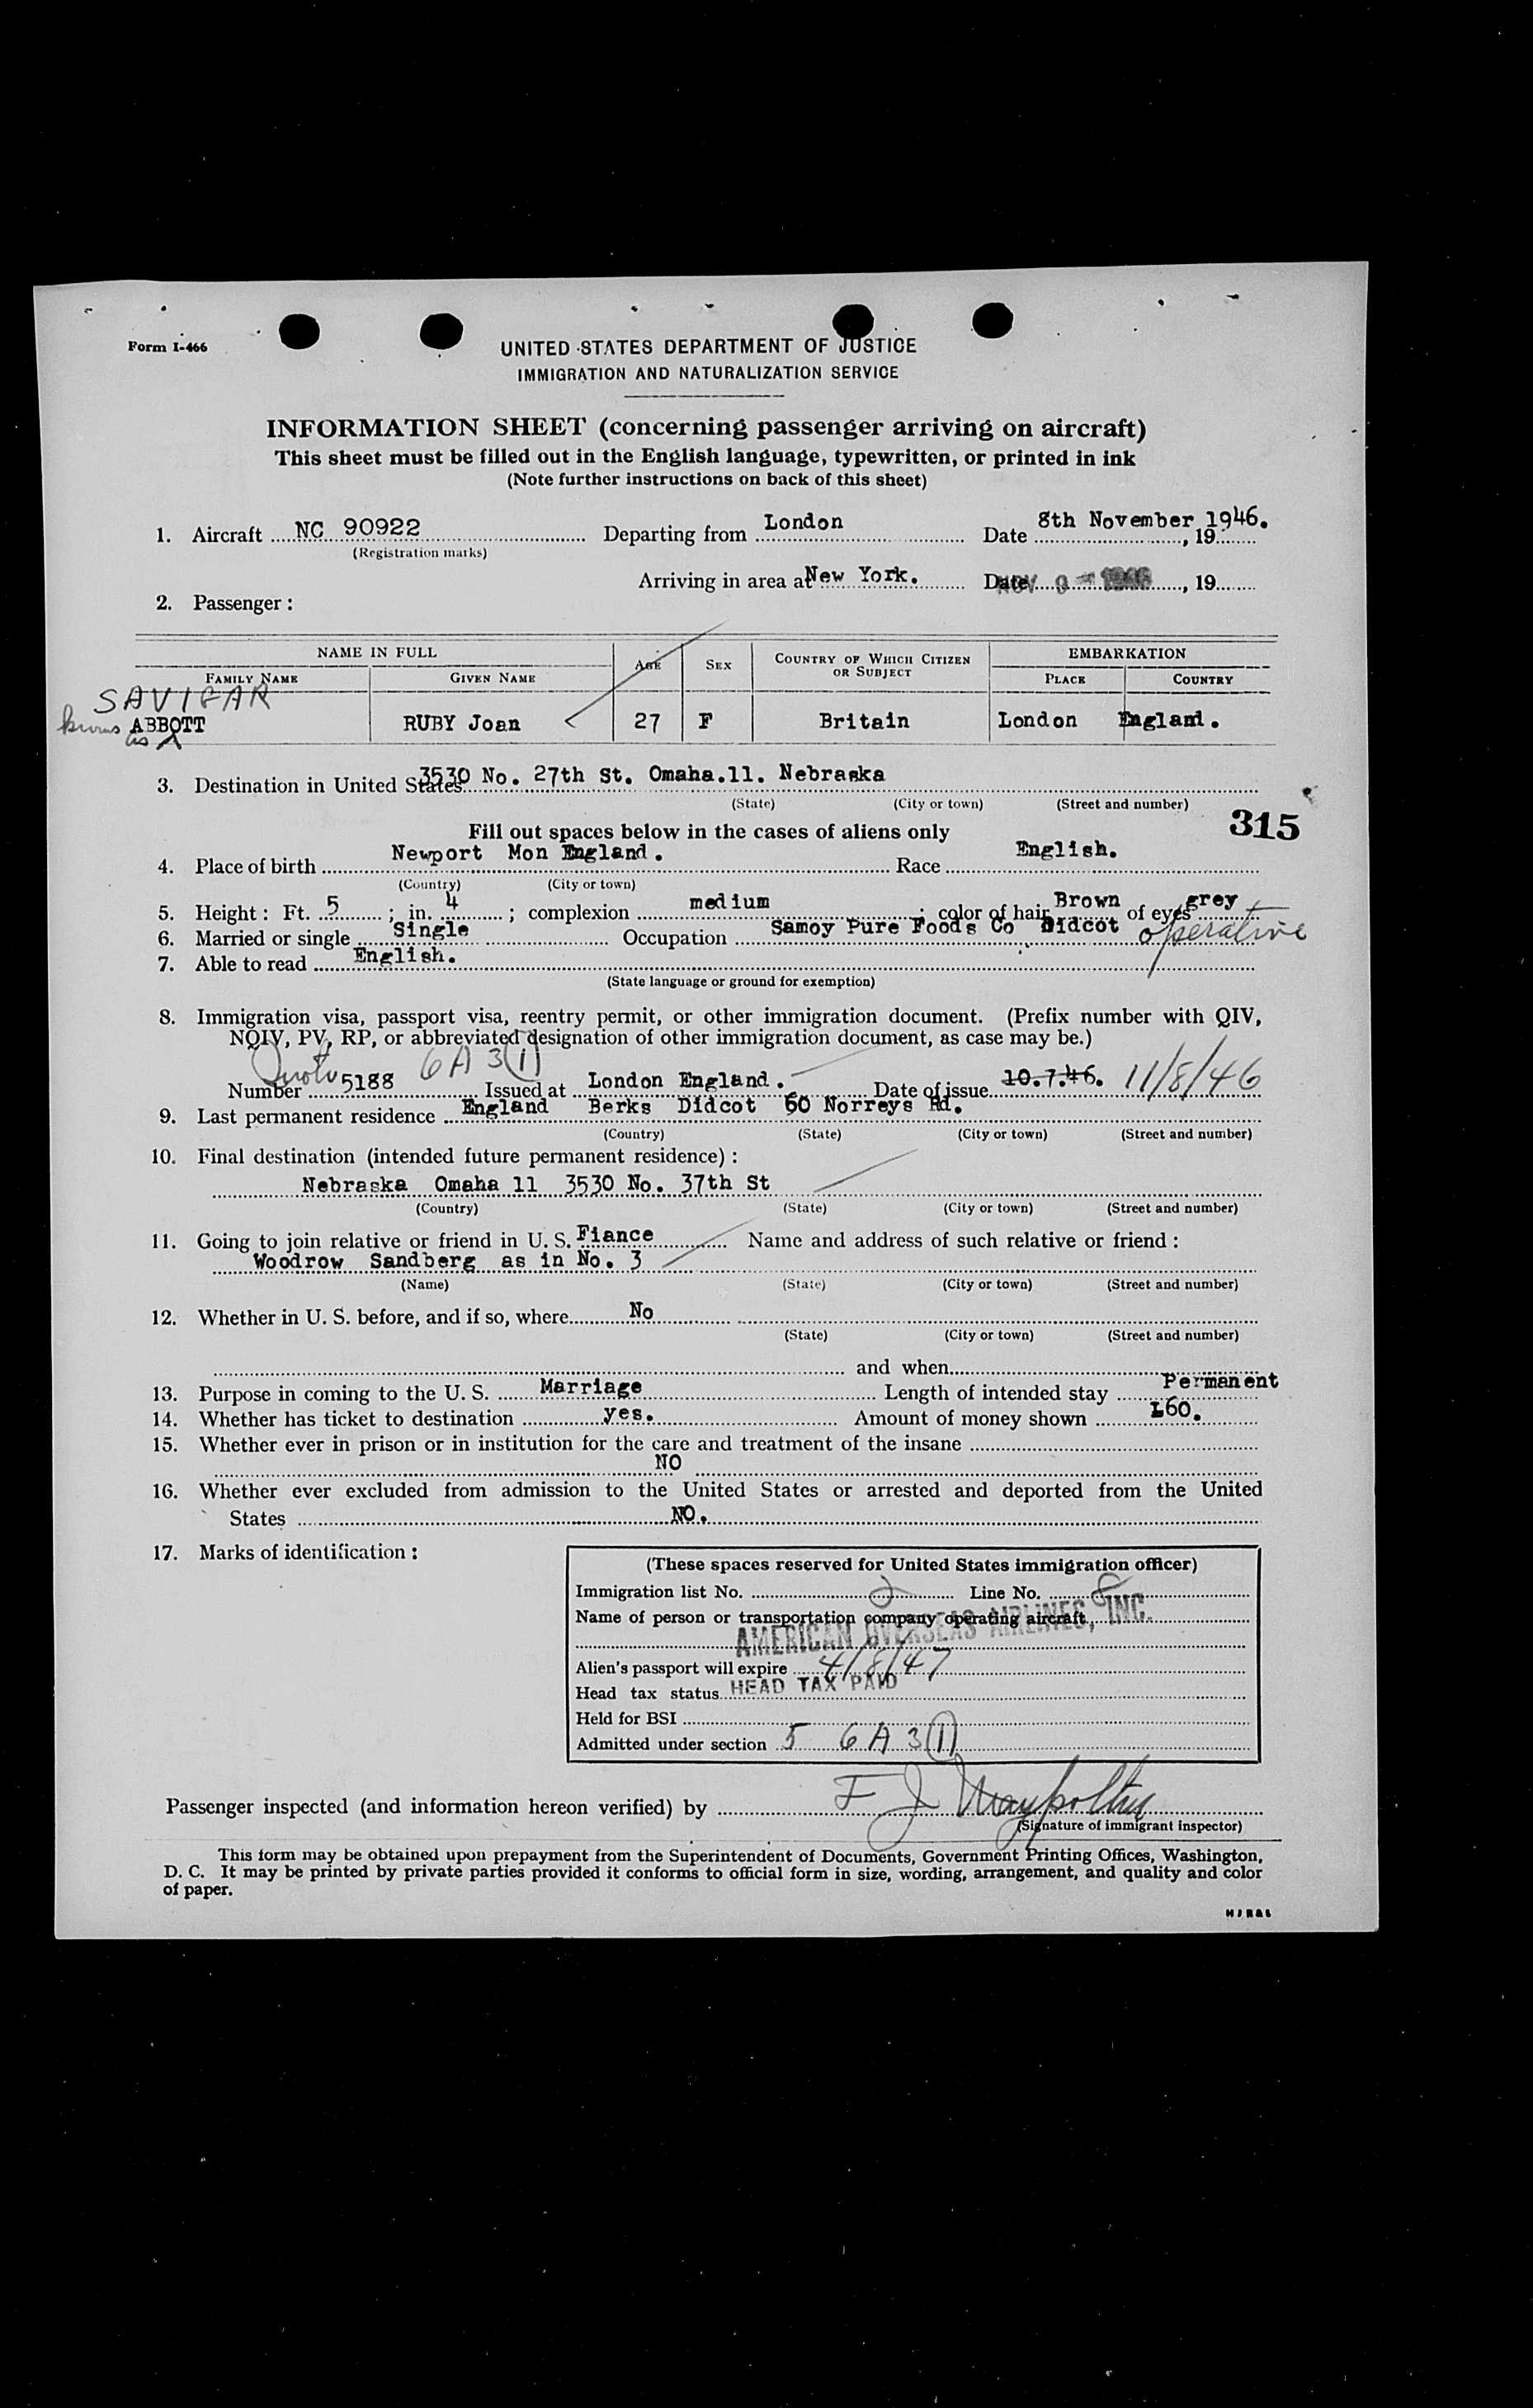 Form I-466
UNITED STATES DEPARTMENT OF JUSTICE
IMMIGRATION AND NATURALIZATION SERVICE
INFORMATION SHEET (concerning passenger arriving on aircraft)
This sheet must be filled out in the English language, typewritten, or printed in ink
(Note further instructions on back of this sheet)
1. Aircraft NC 90922 Departing from London Date 8th November 1946. , 19
(Registration marks)
Arriving in area at New York. Date NOV 9 - 1946 , 19
2. Passenger :
NAME IN FULL AGE SEX COUNTRY OF WHICH CITIZEN OR SUBJECT EMBARKATION
FAMILY NAME GIVEN NAME PLACE COUNTRY
SAVIGAR
known as ABBOTT RUBY Joan 27 F Britain London England.
3. Destination in United States 3530 No. 27th St. Omaha.11. Nebraska
(State) (City or town) (Street and number)
315
Fill out spaces below in the cases of aliens only
4. Place of birth Newport Mon England. Race English.
(Country) (City or town)
5. Height : Ft. 5 ; in. 4 ; complexion medium ; color of hair Brown of eyes grey
6. Married or single Single Occupation Samoy Pure Foods Co Didcot operative
7. Able to read English.
(State language or ground for exemption)
8. Immigration visa, passport visa, reentry permit, or other immigration document. (Prefix number with QIV,
NQIV, PV, RP, or abbreviated designation of other immigration document, as case may be.)
Quota 6A3(1)
Number 5188 Issued at London England. Date of issue 10.7.46. 11/8/46
9. Last permanent residence England Berks Didcot 60 Norreys Rd.
(Country) (State) (City or town) (Street and number)
10. Final destination (intended future permanent residence) :
Nebraska Omaha 11 3530 No. 37th St
(Country) (State) (City or town) (Street and number)
11. Going to join relative or friend in U. S. Fiance Name and address of such relative or friend :
Woodrow Sandberg as in No. 3
(Name) (State) (City or town) (Street and number)
12. Whether in U. S. before, and if so, where No
(State) (City or town) (Street and number)
and when
13. Purpose in coming to the U. S. Marriage Length of intended stay Permanent
14. Whether has ticket to destination yes. Amount of money shown £60.
15. Whether ever in prison or in institution for the care and treatment of the insane
NO
16. Whether ever excluded from admission to the United States or arrested and deported from the United
States NO.
17. Marks of identification :
(These spaces reserved for United States immigration officer)
Immigration list No. 2 Line No. 8
Name of person or transportation company operating aircraft
AMERICAN OVERSEAS AIRLINES, INC.
Alien's passport will expire 4/8/47
Head tax status HEAD TAX PAID
Held for BSI
Admitted under section 5 6A3(1)
Passenger inspected (and information hereon verified) by F J
(Signature of immigrant inspector)
This form may be obtained upon prepayment from the Superintendent of Documents, Government Printing Offices, Washington,
D. C. It may be printed by private parties provided it conforms to official form in size, wording, arrangement, and quality and color
of paper.